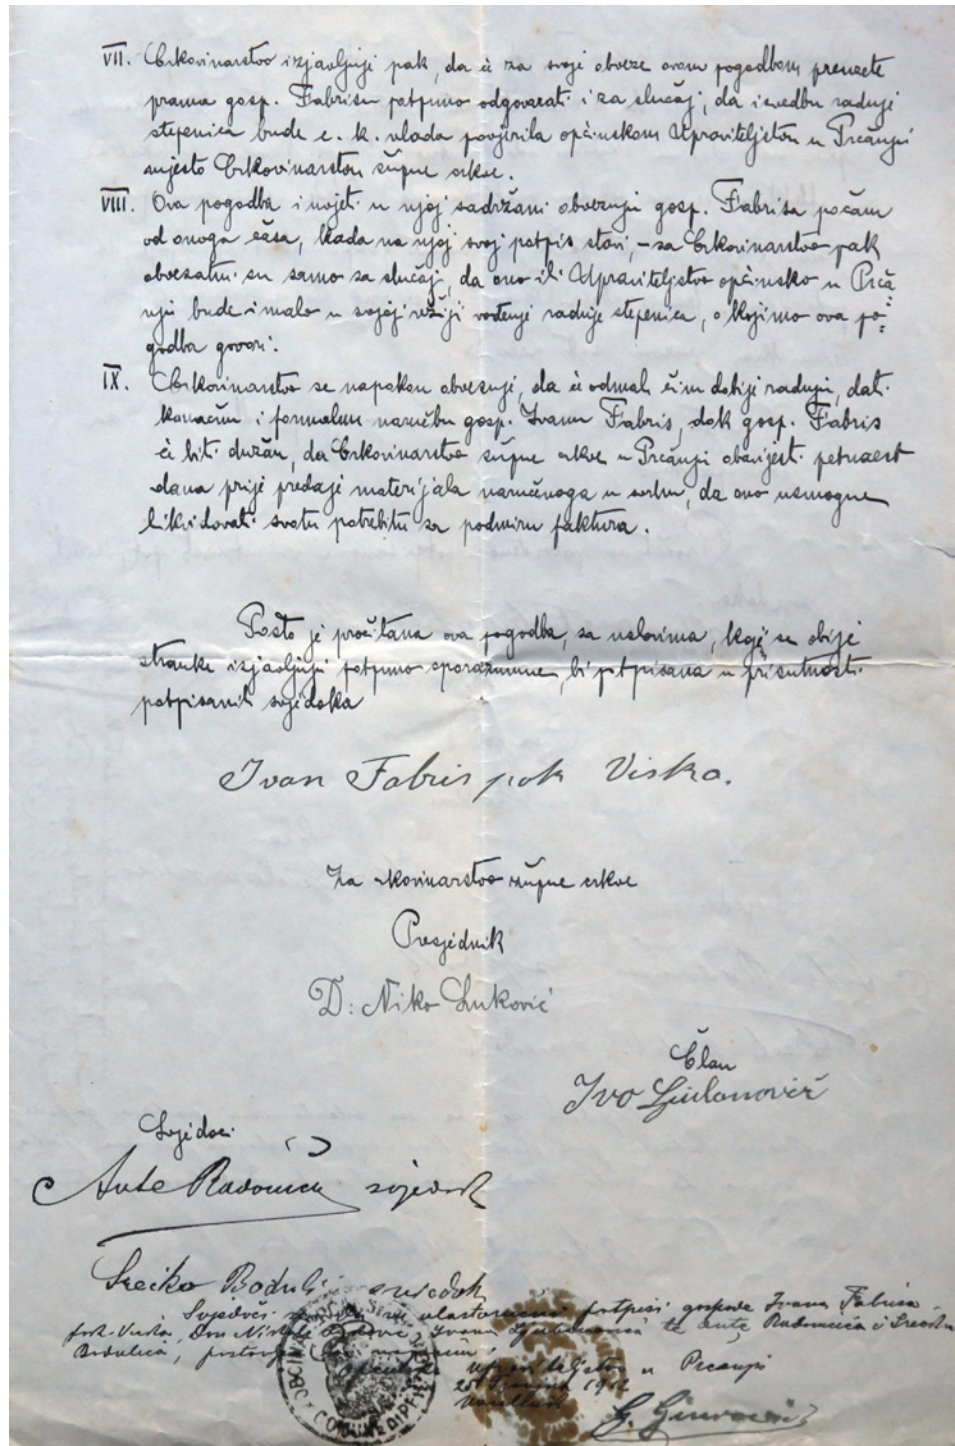 VII. Crkovinarstvo izjavljuje pak, da će za svoje obveze ovom pogodbom preuzete
prama gosp. Fabrisu potpuno odgovarati i za slučaj, da izvedbu radnje
stepenica bude c. k. vlada povjerila općinskom Upraviteljstvu u Prčanju
mjesto Crkovinarstvu župne crkve.
VIII. Ova pogodba i uvjeti u njoj sadržani obvezuju gosp. Fabrisa počam
od onoga časa, kada na njoj svoj potpis stavi, – za Crkovinarstvo pak
obvezatni su samo za slučaj, da ono ili Upraviteljstvo općinsko u Prča
nju bude imalo u svojoj režiji vođenje radnje stepenica, o kojima ova po=
godba govori.
IX. Crkovinarstvo se napokon obvezuje, da će odmah čim dobije radnju, dati
konačnu i formalnu naručbu gosp. Ivanu Fabris, dok gosp. Fabris
će biti dužan, da Crkovinarstvo župne crkve u Prčanju obavijesti petnaest
dana prije predaje materijala naručenoga u svrhu, da ono uzmogne
likvidovati svotu potrebitu za podmiru faktura.
Pošto je pročitana ova pogodba, sa uslovima, koje se obije
stranke izjavljuju potpuno sporazumne, bi potpisana u prisutnosti
potpisanih svjedoka
Ivan Fabris pok Viska.
Za crkovinarstvo župne crkve
Presjednik
D: Niko Luković
Član
Ivo Gjurlanović
Svjedoci
Ante Radoničić svjedok
Srećko Bodulić sviedok
Svjedoči vlastoručne potpise gospode Ivana Fabrisa
pok. Viska, Don Niko Luković, Ivana te Ante Radoničića i Srećka
Bodulića,
Upraviteljstvo u Prčanju
1912
OPĆINA
COMUNE DI PERZAGNO